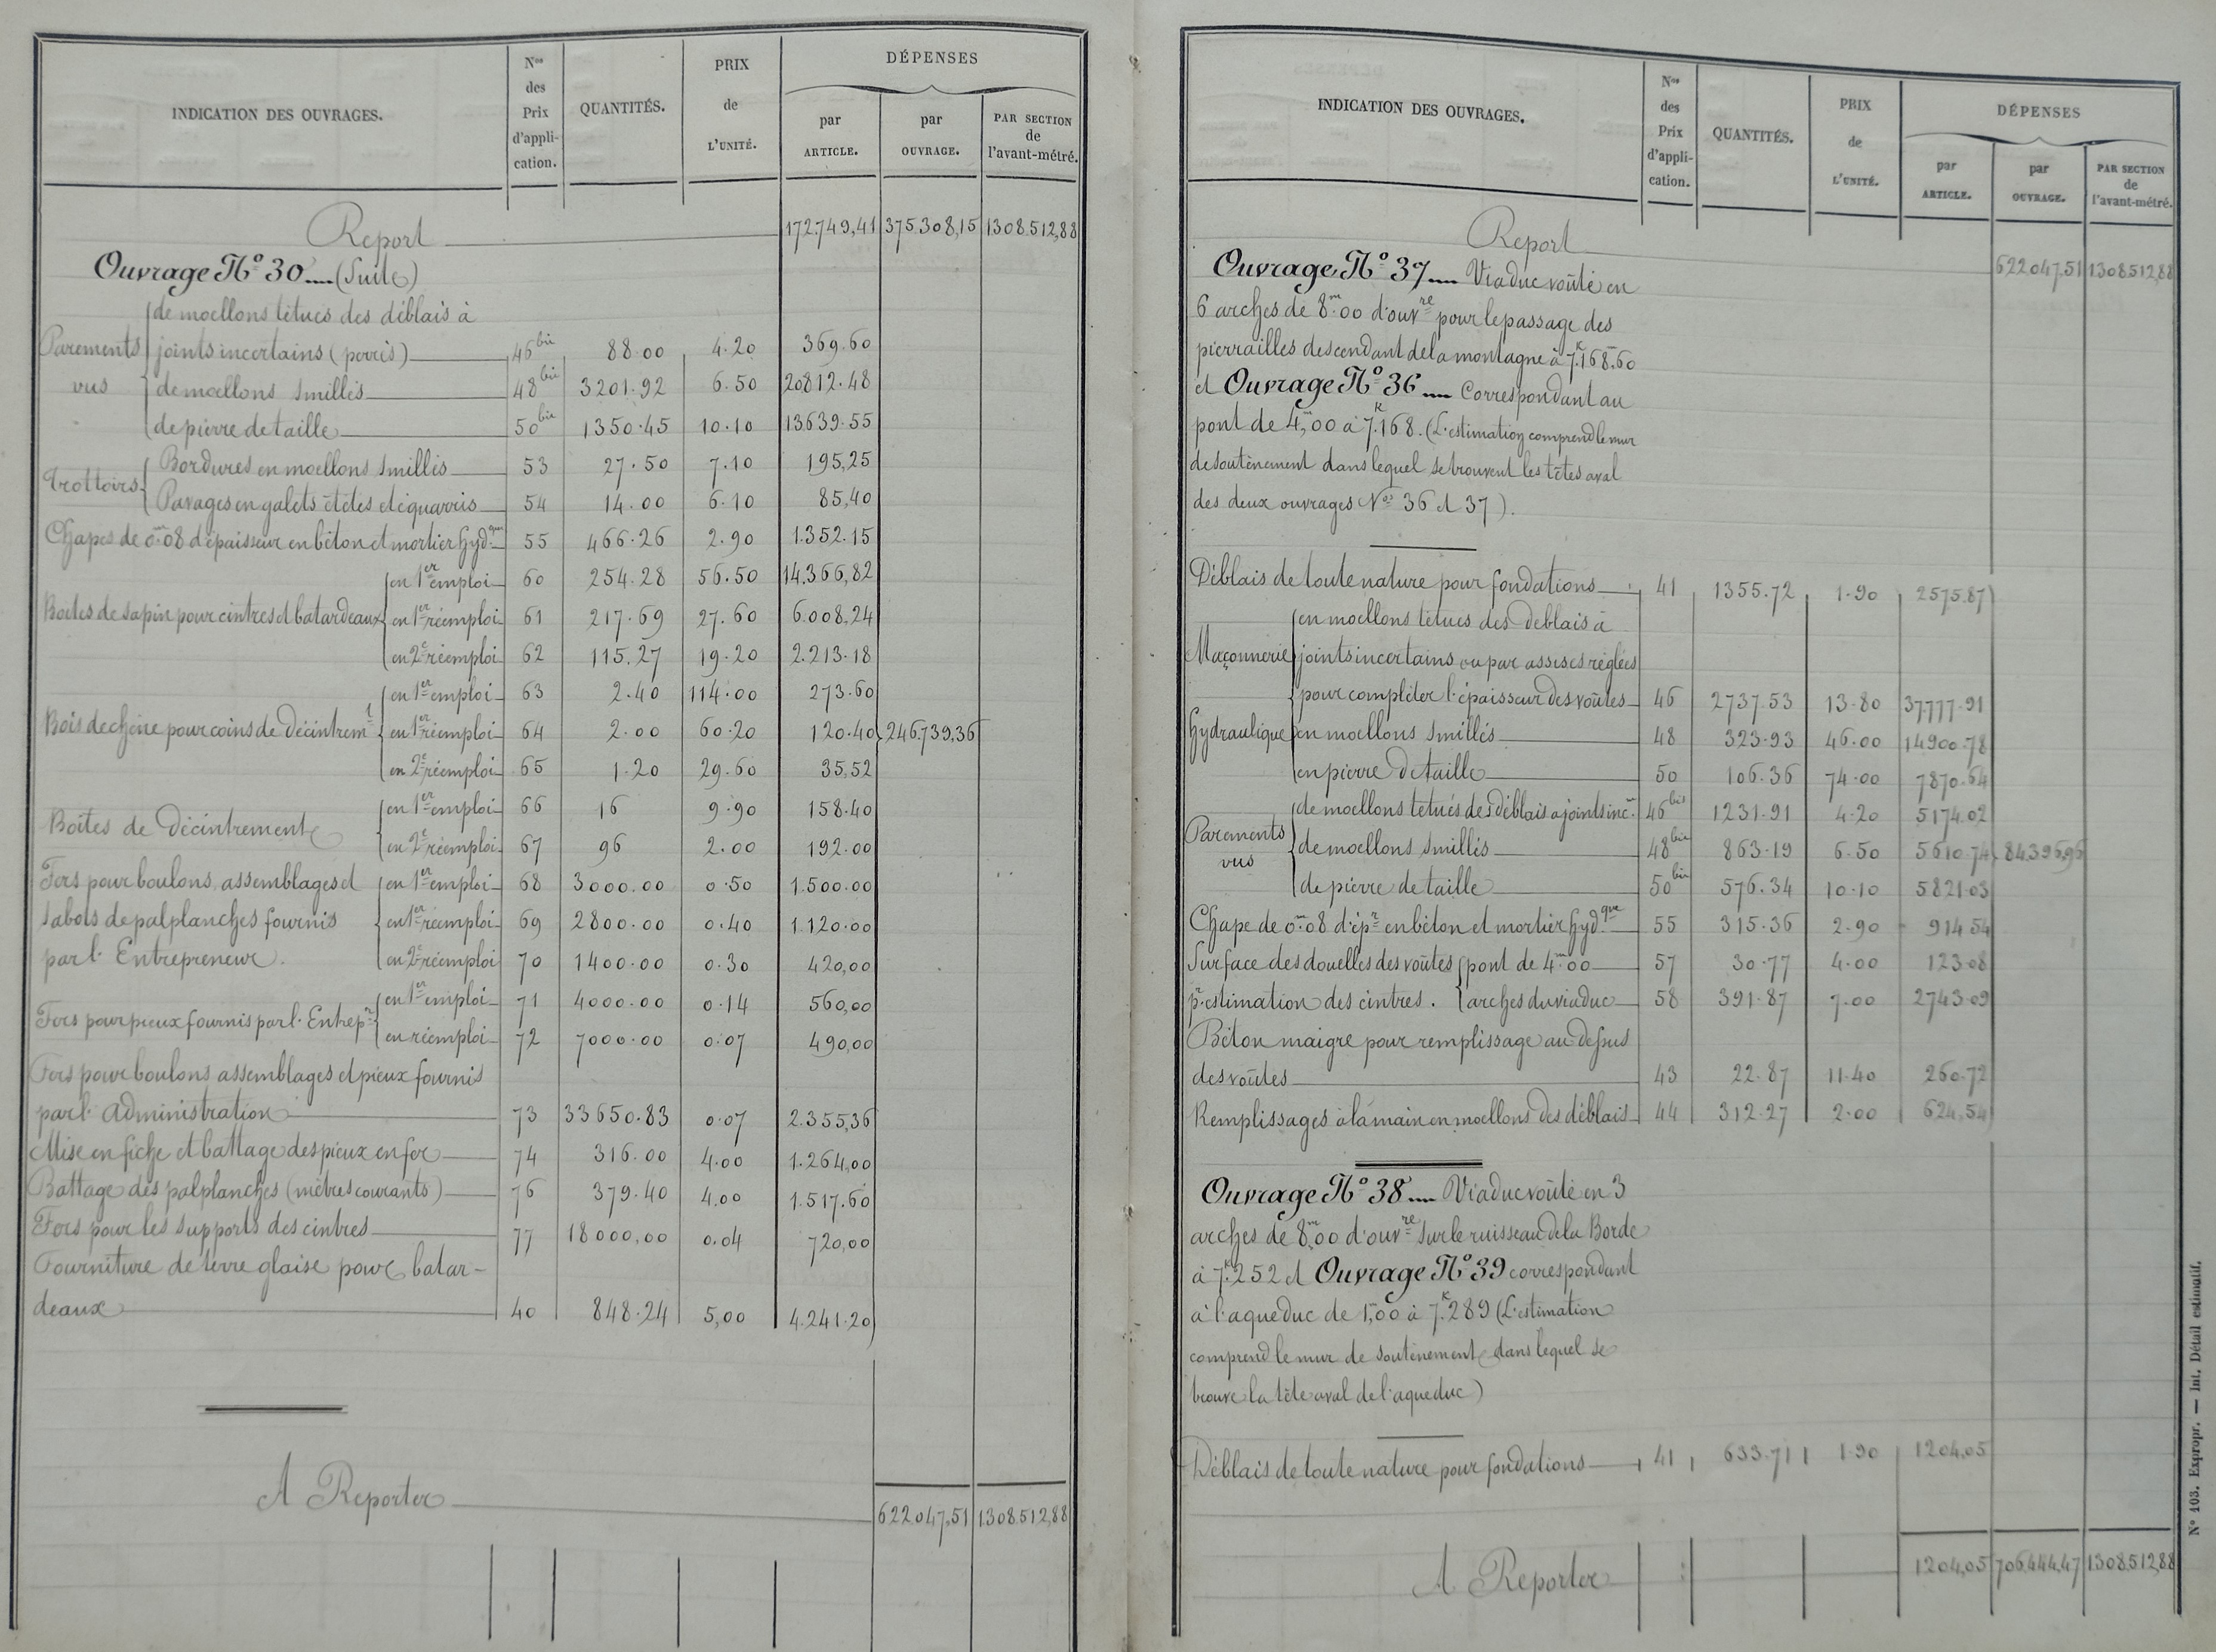 INDICATION DES OUVRAGES. Nos des Prix d'application. QUANTITÉS. PRIX de L'UNITÉ. DÉPENSES par ARTICLE. par OUVRAGE. PAR SECTION de l'avant-métré.
Report 172.749,41 375.308,15 1.308.512,88
Ouvrage No 30 (Suite)
Parements vus
de moellons têtués des déblais à
joints incertains (perrés) 46 bis 88.00 4.20 369.60
de moellons smillés 48 bis 3201.92 6.50 20812.48
de pierre de taille 50 bis 1350.45 10.10 13639.55
Trottoirs
Bordures en moellons smillés 53 27.50 7.10 195,25
Pavages en galets étêtés et équarris 54 14.00 6.10 85,40
Chapes de 0m.08 d'épaisseur en béton et mortier hydque 55 466.26 2.90 1.352.15
en 1er emploi 60 254.28 56.50 14.366,82
Boites de sapin pour cintres et batardeaux en 1er réemploi 61 217.69 27.60 6.008,24
en 2e réemploi 62 115.27 19.20 2.213.18
en 1er emploi 63 2.40 114.00 273.60
Bois de chêne pour coins de décintremt en 1er réemploi 64 2.00 60.20 120.40 246.739,36
en 2e réemploi 65 1.20 29.60 35,52
Boîtes de décintrement
en 1er emploi 66 16 9.90 158.40
en 2e réemploi 67 96 2.00 192.00
Fers pour boulons, assemblages et en 1er emploi 68 3000.00 0.50 1.500.00
sabots de palplanches fournis en 1er réemploi 69 2800.00 0.40 1.120.00
par l'Entrepreneur. en 2e réemploi 70 1400.00 0.30 420,00
en 1er emploi 71 4000.00 0.14 560,00
Fers pour pieux fournis par l'Entrepr en réemploi 72 7000.00 0.07 490,00
Fers pour boulons assemblages et pieux fournis
par l'Administration 73 33650.83 0.07 2.355,36
Mise en fiche et battage des pieux en fer 74 316.00 4.00 1.264,00
Battage des palplanches (mètres courants) 76 379.40 4.00 1.517.60
Fers pour les supports des cintres 77 18000,00 0.04 720,00
Fourniture de terre glaise pour batar-
deaux 40 848.24 5,00 4.241.20
A Reporter 622.047,51 1.308.512,88
INDICATION DES OUVRAGES. Nos des Prix d'application. QUANTITÉS. PRIX de L'UNITÉ. DÉPENSES par ARTICLE. par OUVRAGE. PAR SECTION de l'avant-métré.
Report 622.047,51 1.308.512,88
Ouvrage No 37 Viaduc voûté en
6 arches de 8m.00 d'ouvre pour le passage des
pierrailles descendant de la montagne à 7k.168.60
et Ouvrage No 36 Correspondant au
pont de 4m,00 à 7k.168. (L'estimation comprend le mur
de soutènement dans lequel se trouvent les têtes aval
des deux ouvrages Nos 36 et 37).
Déblais de toute nature pour fondations 41 1355.72 1.90 2575.87
Maçonnerie hydraulique
en moellons têtués des déblais à
joints incertains ou par assises réglées
pour compléter l'épaisseur des voûtes 46 2737.53 13.80 37777.91
en moellons smillés 48 323.93 46.00 14900.78
en pierre de taille 50 106.36 74.00 7870.64
Parements vus
de moellons têtués des déblais à joints incns 46 bis 1231.91 4.20 5174.02
de moellons smillés 48 bis 863.19 6.50 5610.74 84.396,96
de pierre de taille 50 bis 576.34 10.10 5821.03
Chape de 0m.08 d'épr en béton et mortier hydque 55 315.36 2.90 914.54
Surface des douelles des voûtes pont de 4m.00 57 30.77 4.00 123.08
pr estimation des cintres. arches du viaduc 58 391.87 7.00 2743.09
Béton maigre pour remplissage au dessus
des voûtes 43 22.87 11.40 260.72
Remplissages à la main en moellons des déblais 44 312.27 2.00 624,54
Ouvrage No 38 Viaduc voûté en 3
arches de 8m.00 d'ouvre sur le ruisseau de la Borde
à 7k.252 et Ouvrage No 39 correspondant
à l'aqueduc de 1m,00 à 7k.289 (L'estimation
comprend le mur de soutènement dans lequel se
trouve la tête aval de l'aqueduc)
Déblais de toute nature pour fondations 41 633.71 1.90 1204,05
A Reporter 1204,05 706.444,47 1.308.512,88
No 103. Expropr. — Int. Détail estimatif.